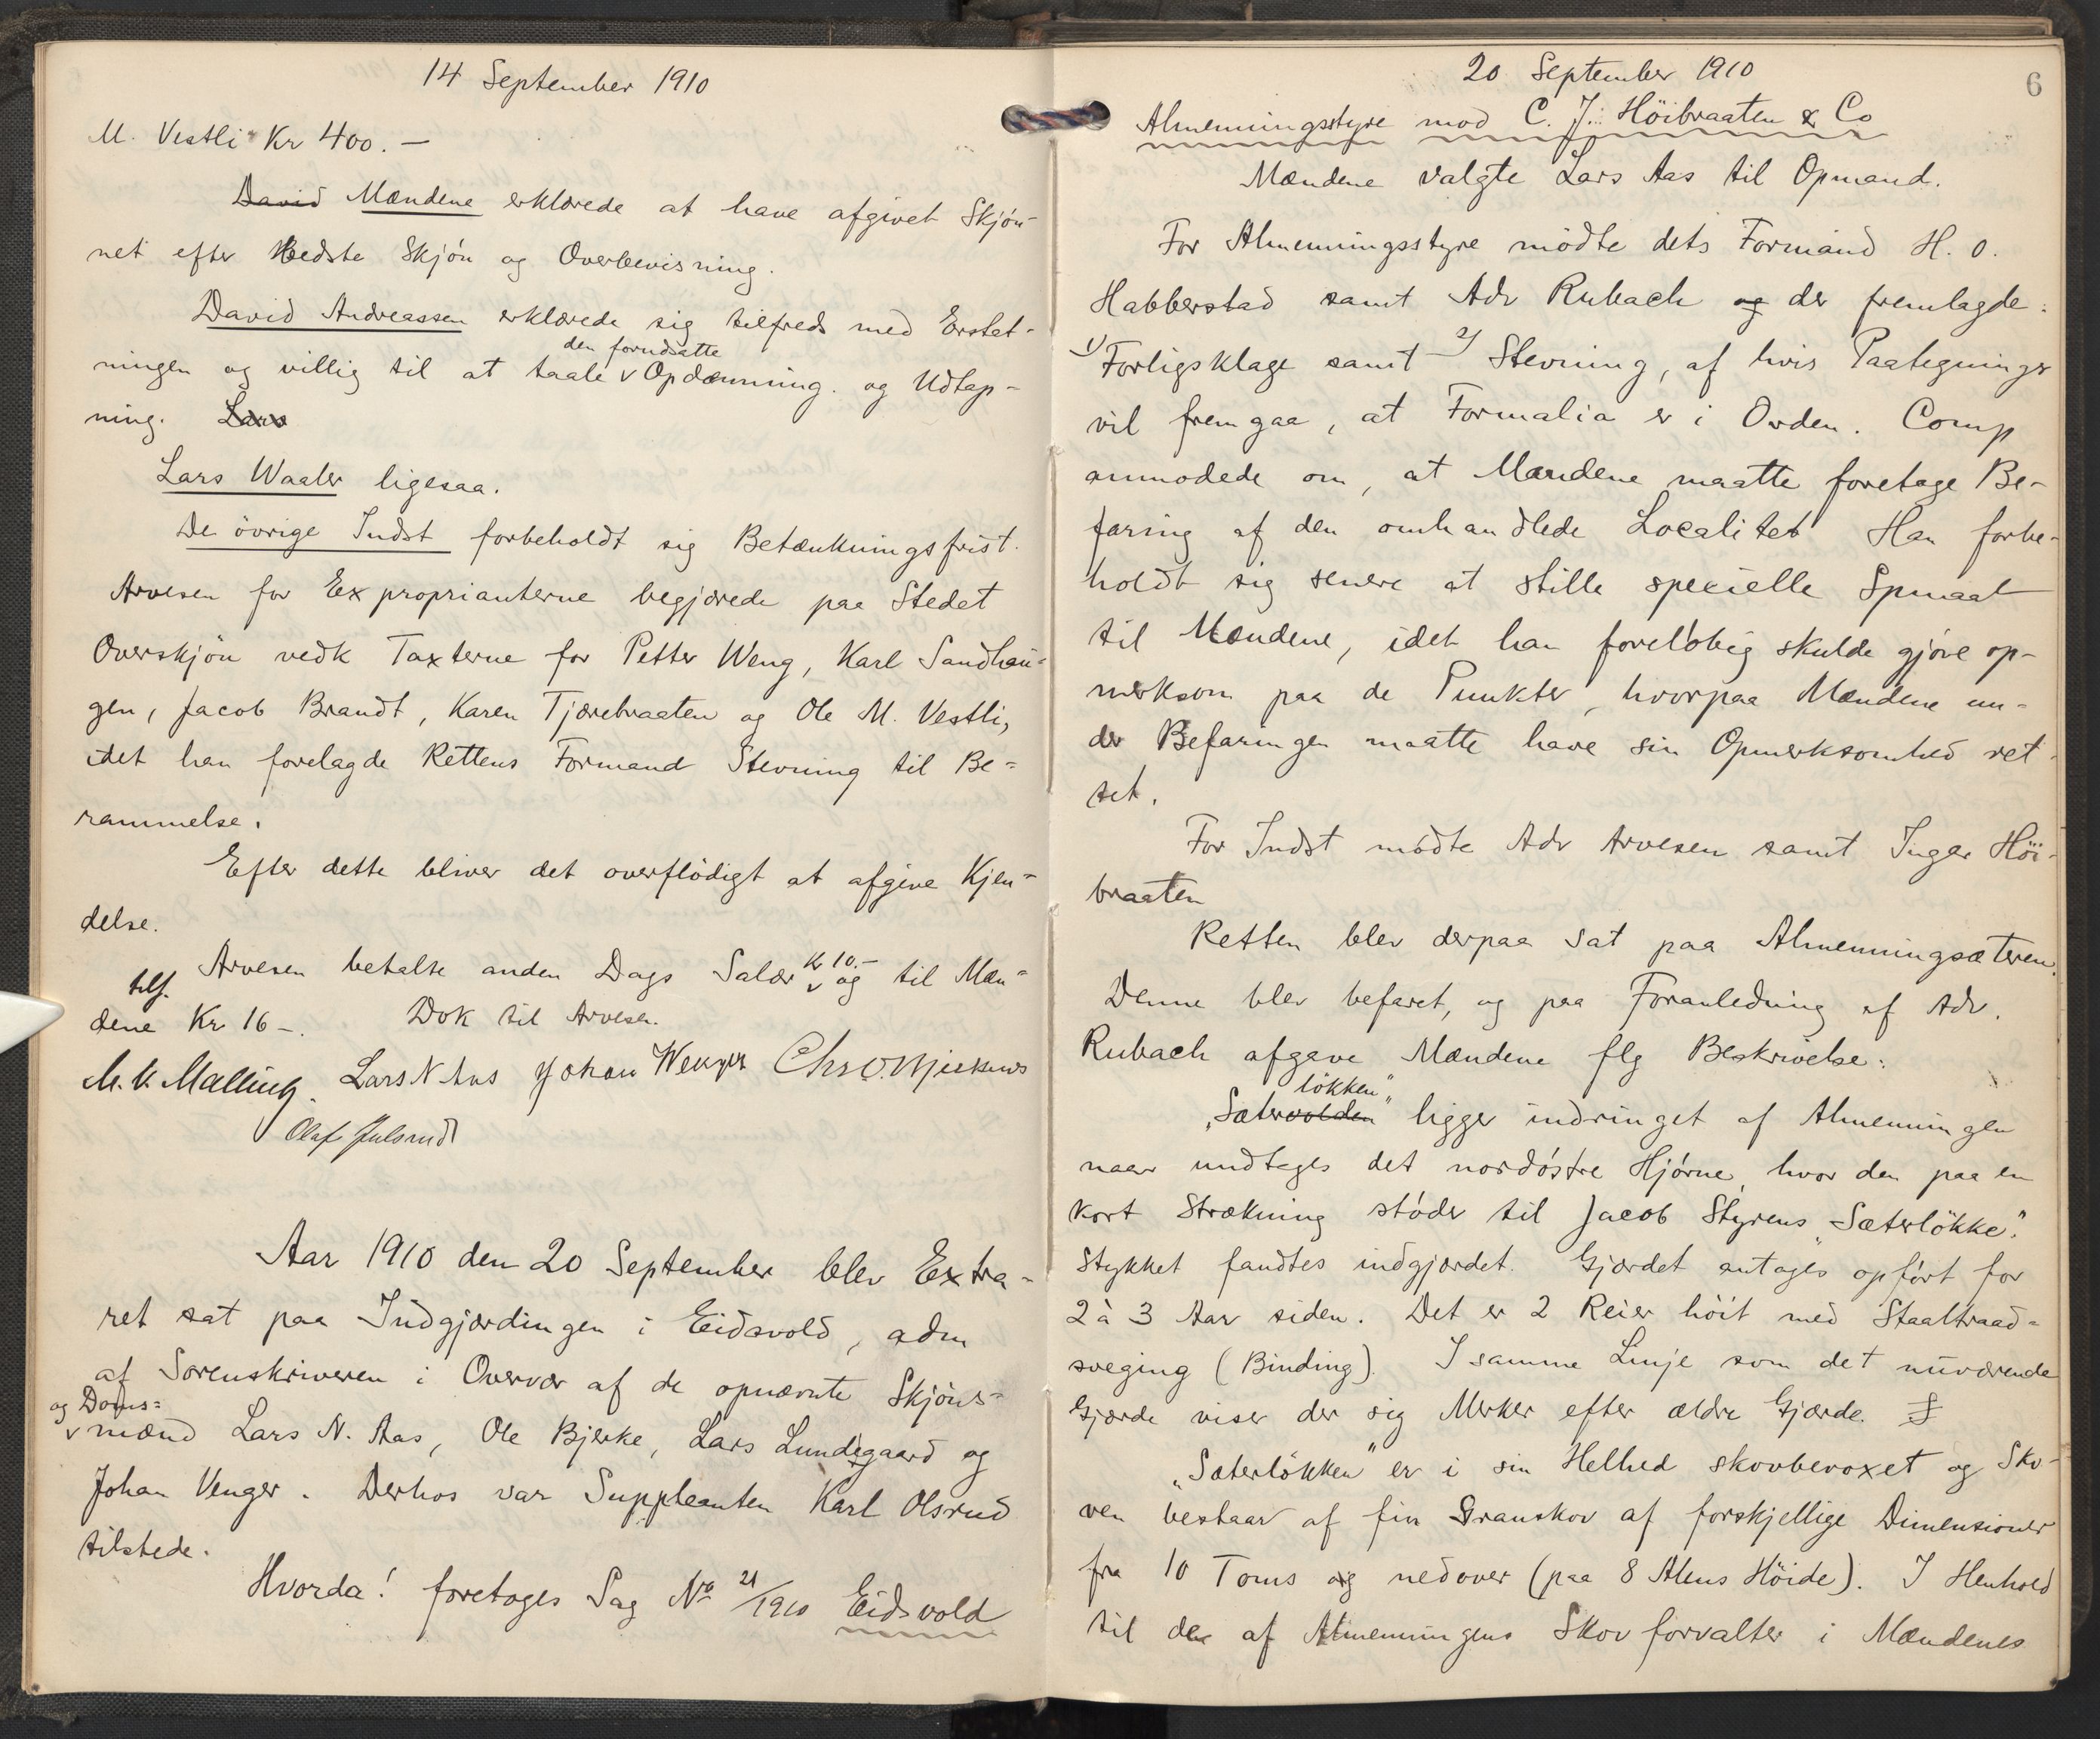 14 September 1910
M. Vestli Kr 400.—
David Mændene erklærede at have afgivet Skjøn-
net efter Bedste Skjøn og Overbevisning.
David Andreassen erklærede sig tilfreds med Erstat-
den forudsatte
ningen og villig til at taale Opdæmning. og Udtap-
ning. Lars
Lars Waaler ligesaa.
De övrige Indst forbeholdt sig Betænkningsfrist.
Arvesen for Exproprianterne begjærede paa Stedet
Overskjön vedk Taxterne for Petter Weng, Karl Sandhau-
gen, Jacob Brandt, Karen Tjærebraaten og Ole M. Vestli,
idet han forelagde Rettens Formand Stevning til Be-
rammelse.
Efter dette bliver det overflödigt at afgive Kjen-
delse.
Arvesen betalte anden Dags Salær Kr 10.— og til Mæn-
tils.
dene Kr 16—. Dok til Arvesen.
M. V. Malling. Lars N Aas Johan Wenger Chr. O.
Olaf Julsrud
Aar 1910 den 20 September blev Extra-
ret sat paa Indgjærdingen i Eidsvold, adm
af Sorenskriveren i Overvær af de opnævnte Skjöns-
og Doms=
mænd Lars N. Aas, Ole Bjerke, Lars Lundsgaard og
Johan Venger. Derhos var Suppleanten Karl Olsrud
tilstede.
Hvorda! foretoges Sag No 21/1910 Eidsvold
20 September 1910
6
Almenningsstyre mod C. J. Höibraaten & Co
Mændene valgte Lars Aas til Opmand.
For Almenningsstyre mödte dets Formand H. O.
Habberstad samt Adv Rubach og der fremlagde:
1) Forligsklage samt 2) Stevning, af hvis Paategninger
vil fremgaa, at Formalia er i Orden. Comp
anmodede om, at Mændene maatte foretage Be-
faring af den omhandlede Localitet Han forbe-
holdt sig senere at stille specielle Spmaal
til Mændene, idet han forelöbig skulde gjöre op-
merksom paa de Punkter, hvorpaa Mændene un-
der Befaringen maatte have sin Opmerksomhed ret-
tet.
For Indst mödte Adv Arvesen samt Inger Höi-
braaten
Retten blev derpaa sat paa Almenningsæteren.
Denne blev befaret, og paa Foranledning af Adv.
Rubach afgave Mændene flg Beskrivelse:
lökken"
„Sætervolden" ligger indringet af Almenningen
naar undtages det nordöstre Hjörne, hvor den paa en
kort Strækning stöder til Jacob Styrens „Sæterlökke".
Stykket fandtes indgjærdet. Gjærdet antages opfört for
2 à 3 Aar siden. Det er 2 Reier höit med Staaltraad-
sveging (Binding). I samme Linje som det nuværende
Gjærde viser der sig Merker efter ældre Gjærde. S
„Sæterlökken" er i sin Helhed skovbevoxet og Sko-
ven bestaar af fin Granskov af forskjellige Dimensioner
fra 10 Toms og nedover (paa 8 Alens Höide). I Henhold
til den af Almenningens Skovforvalter i Mændenes